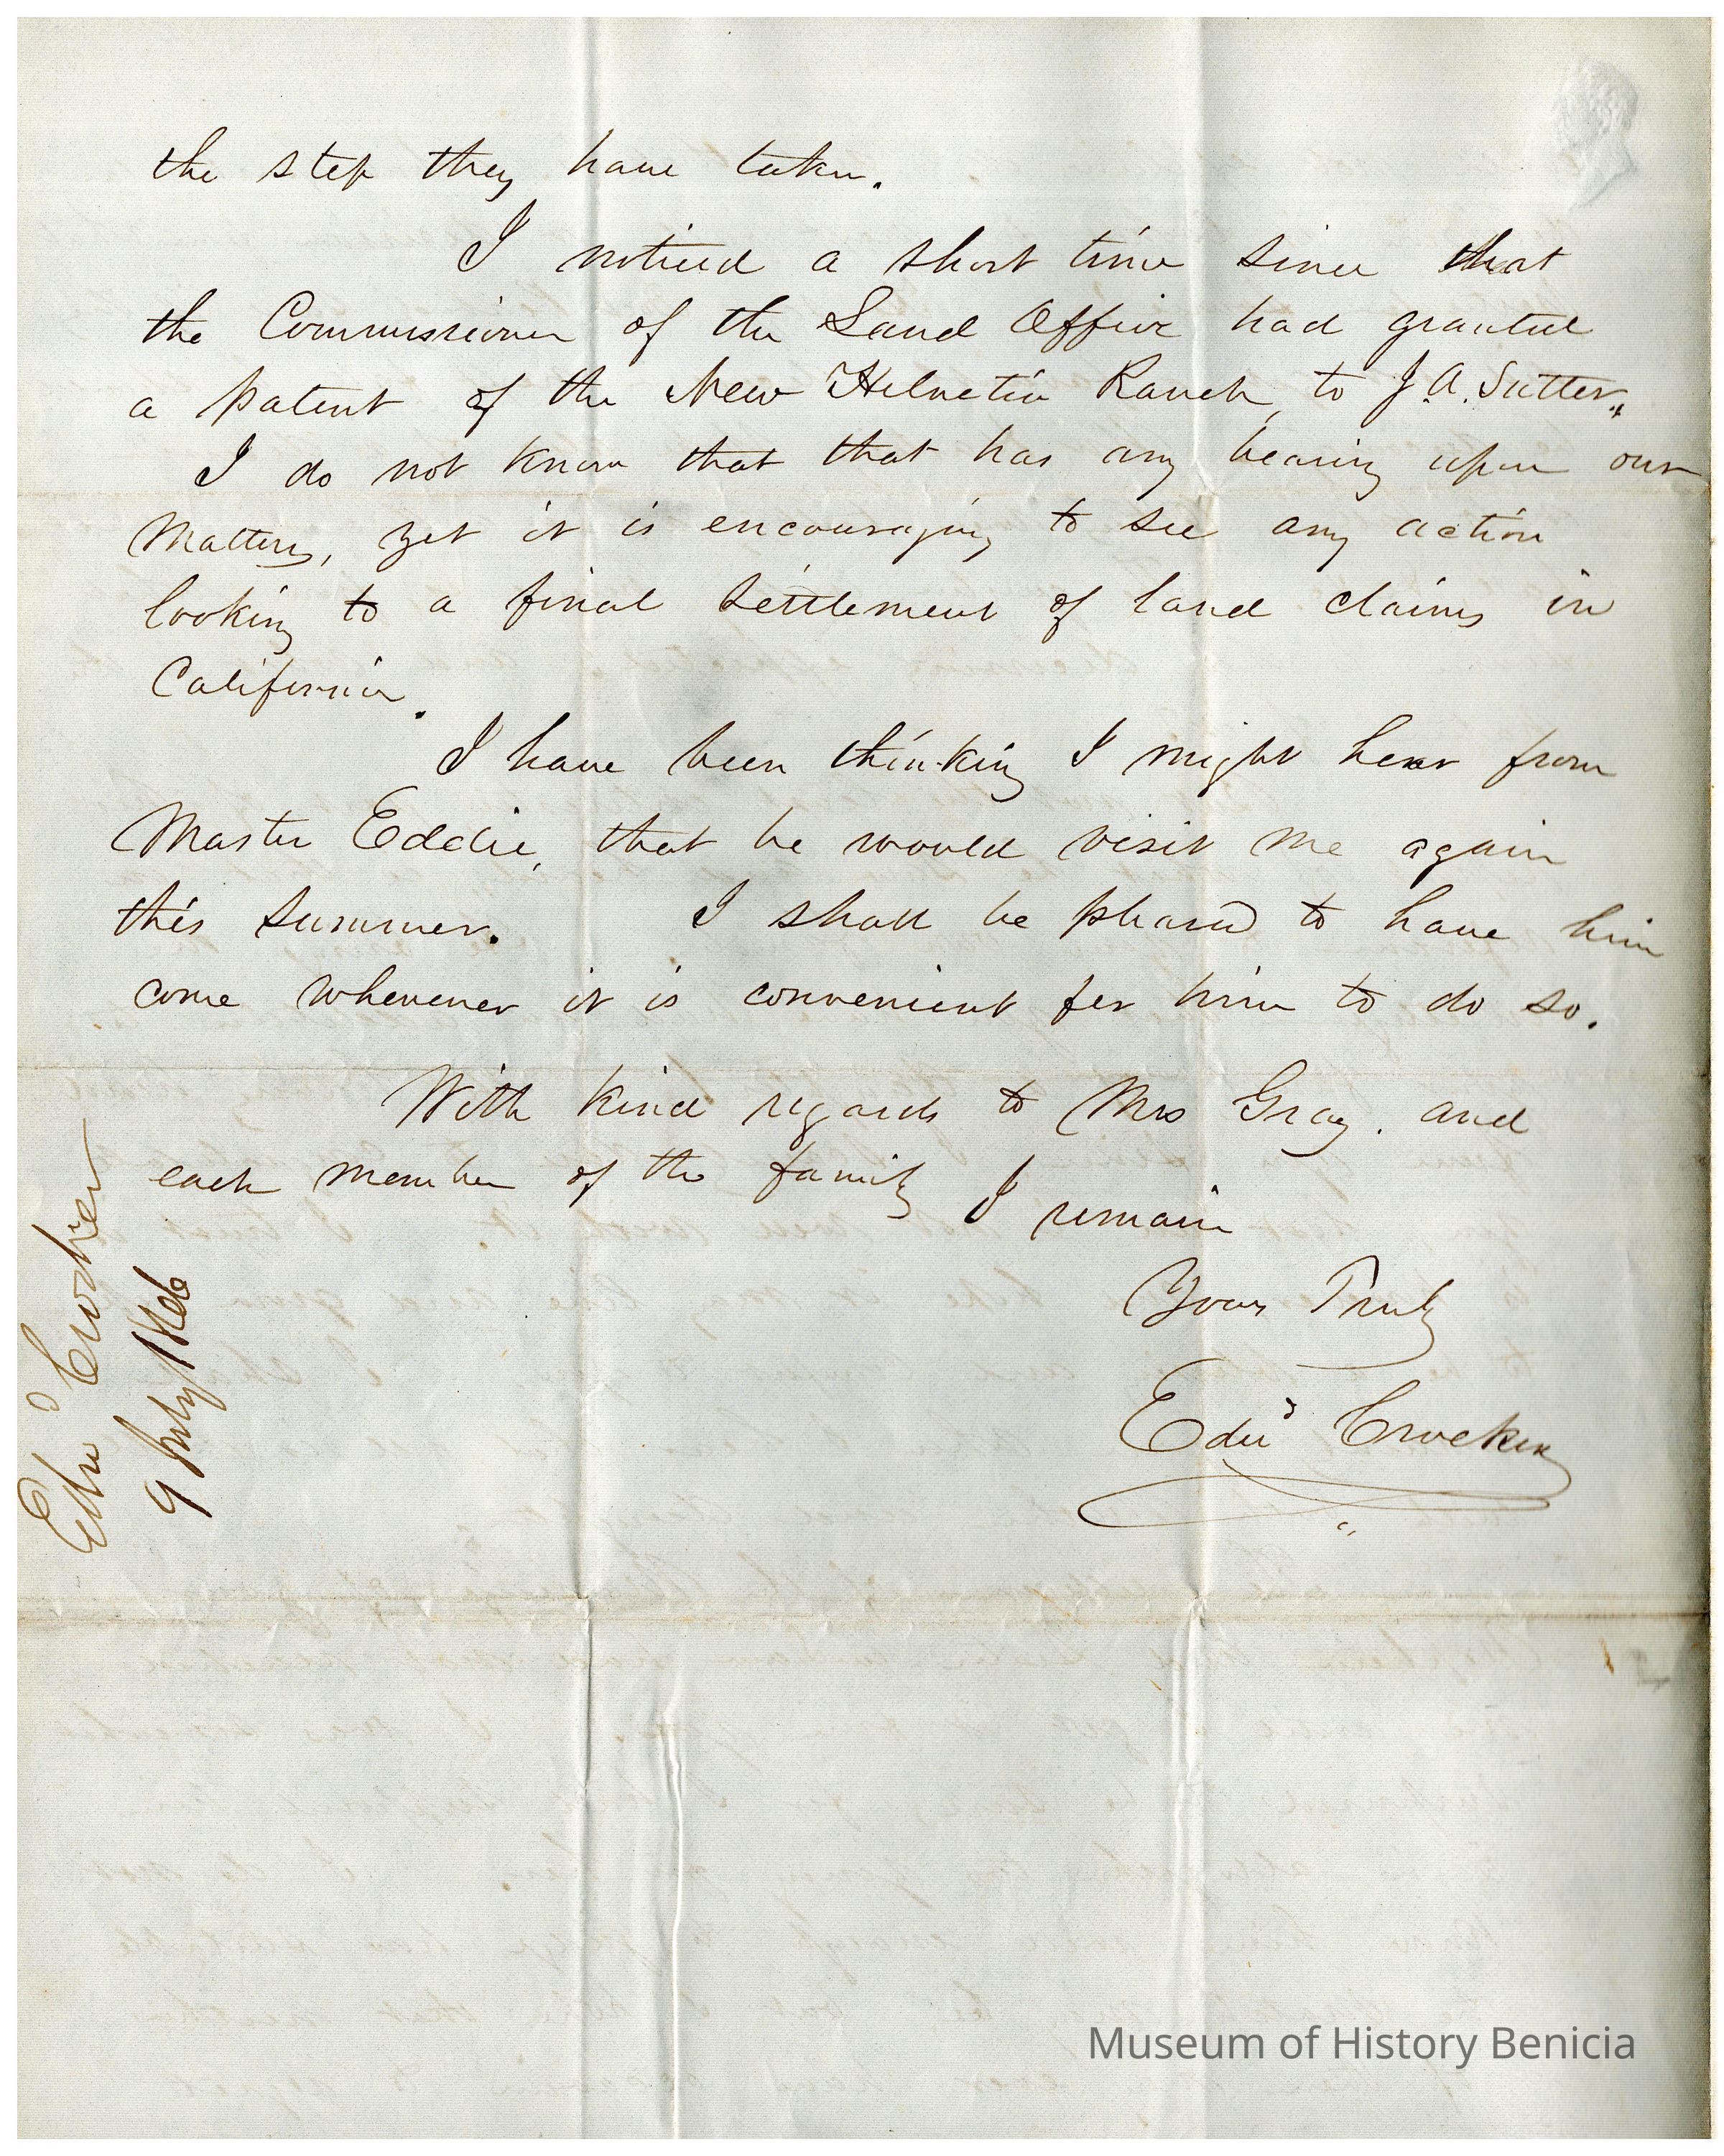 the step they have taken.
I noticed a short time since that
the Commissioner of the Land Office had granted
a patent of the New Helvetia Ranch, to J. A. Sutter.
I do not know that that has any bearing upon our
Matters, yet it is encouraging to see any action
looking to a final settlement of land claims in
California.
I have been thinking I might hear from
Master Eddie, that he would visit me again
this summer. I shall be pleased to have him
come whenever it is convenient for him to do so.
With kind regards to Mrs Gray. and
each member of the family I remain
Yours Truly
Edwd Crocker
Edwd Crocker
9 July 1866
Museum of History Benicia